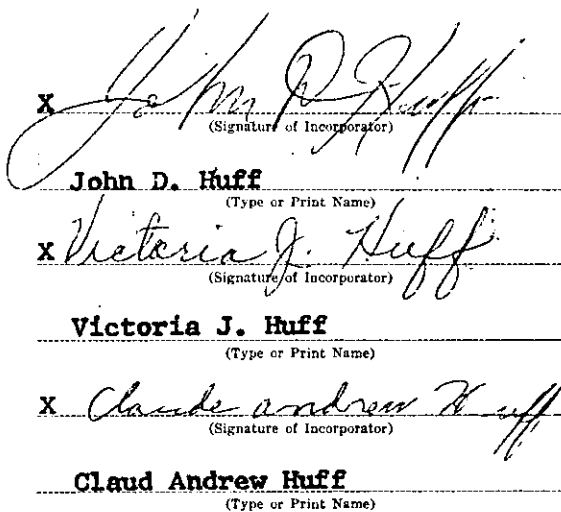 X John D Huff
(Signature of Incorporator)
John D. Huff
(Type or Print Name)
X Victoria J. Huff
(Signature of Incorporator)
Victoria J. Huff
(Type or Print Name)
X Claude andrew Huff
(Signature of Incorporator)
Claud Andrew Huff
(Type or Print Name)